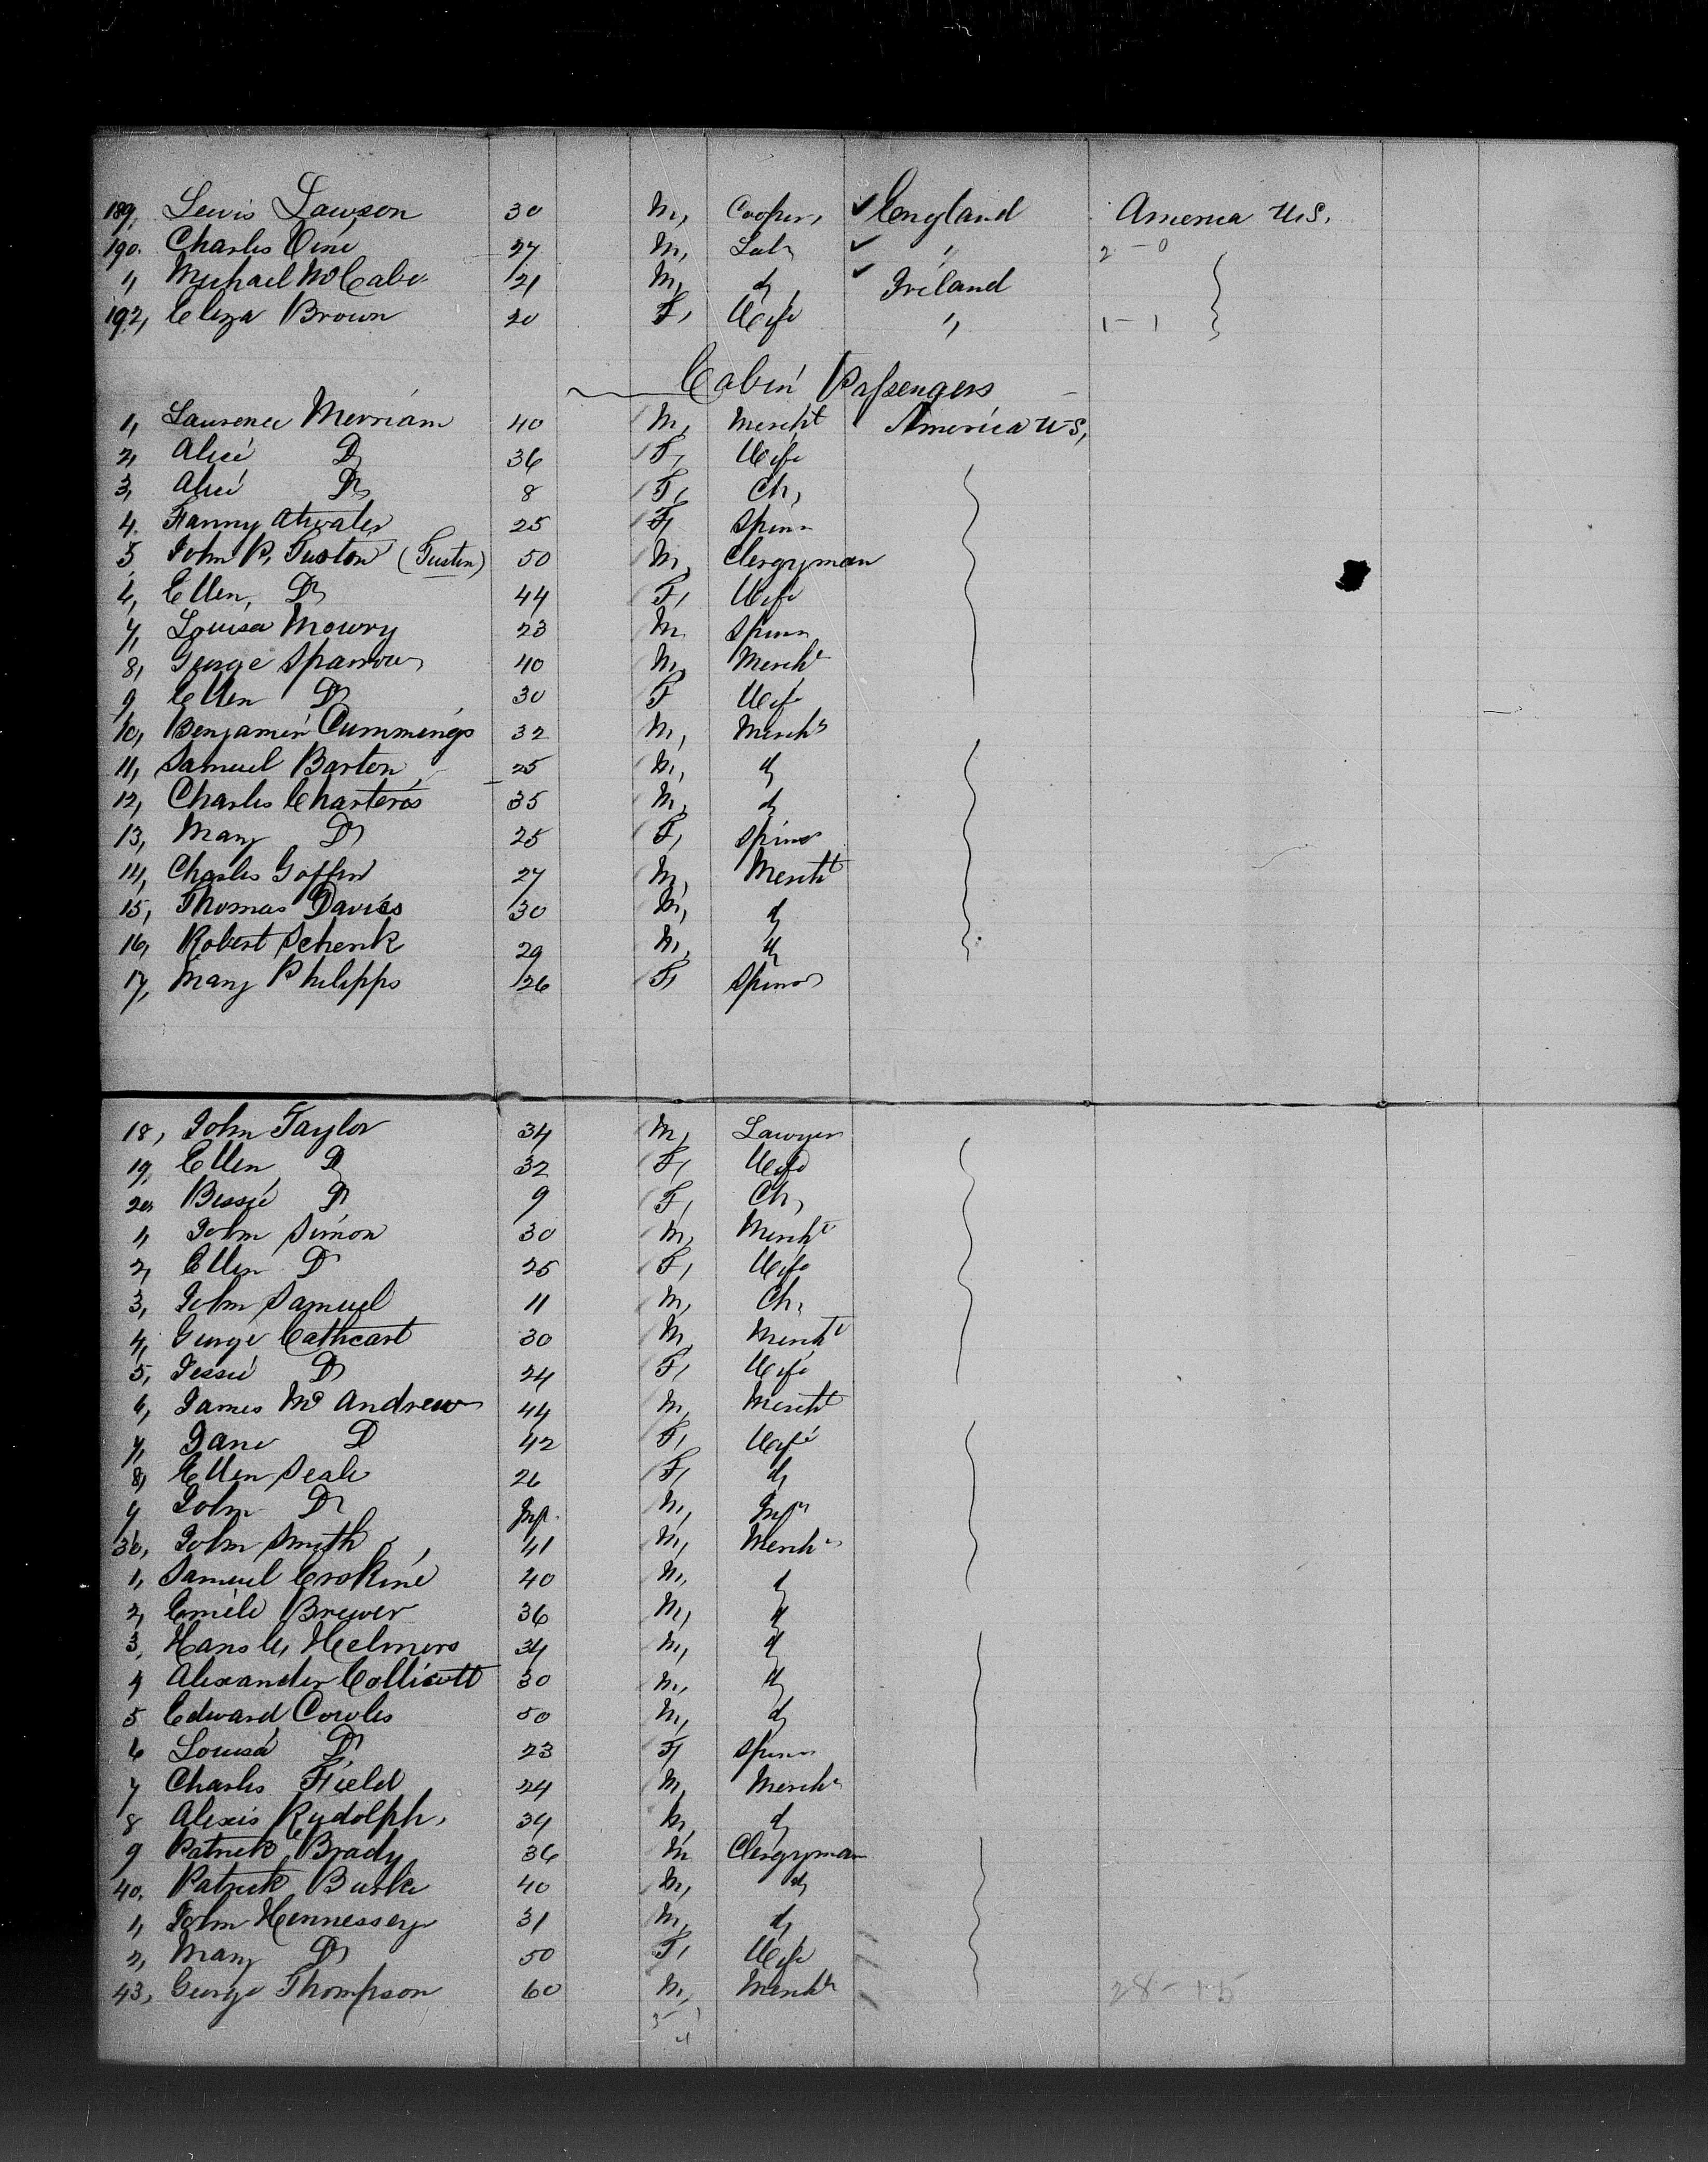 189, Lewis Lawson 30 M, Cooper, ✓ England America U.S.
190. Charles Vine 27 M, Labr ✓ " 2 - 0
1, Michael McCabe 21 M, do ✓ Ireland
192, Eliza Brown 20 F, Wife " 1 - 1
Cabin Passengers
1, Laurence Merriam 40 M, Mercht America U.S,
2, Alice Do 36 F, Wife
3, Alice Do 8 F, Ch,
4. Fanny Atwater 25 F, Spinr
5, John P. Tuston (Tustin) 50 M, Clergyman
6, Ellen, Do 44 F, Wife
7, Louisa Mowry 23 M. Spinr
8, George Sparrow 40 M, Mercht
9, Ellen Do 30 F Wife
10, Benjamin Cummings 32 M, Mercht
11, Samuel Barton 25 M, do
12, Charles Charteros 35 M, do
13, Mary Do 25 F, Spinr
14, Charles Goffin 27 M, Mercht
15, Thomas Davies 30 M, do
16, Robert Schenk 29 M, do
17, Mary Philipps 26 F, Spinr
18, John Taylor 34 M, Lawyer
19, Ellen Do 32 F, Wife
20, Bessie Do 9 F, Ch,
1, John Simon 30 M, Mercht
2, Ellen Do 25 F, Wife
3, John Samuel 11 M, Ch,
4, George Cathcart 30 M, Mercht
5, Jessie Do 24 F, Wife
6, James McAndrew 44 M, Mercht
7, Jane Do 42 F, Wife
8, Ellen Seale 26 F, do
9 John Do Inf. M, Inft
30, John Smith 41 M, Mercht
1, Samuel Erskine 40 M, do
2, Emile Brewer 36 M, do
3, Hans C, Helmers 34 M, do
4 Alexander Collicott 30 M, do
5 Edward Cowles 50 M, do
6 Louisa Do 23 F, Spinr
7 Charles Field 24 M, Mercht
8 Alexis Rudolph, 34 M, do
9 Patrick Brady 36 M Clergyman
40. Patrick Burke 40 M, do
1, John Hennessey 31 M, do
2, Mary Do 50 F, Wife
43, George Thompson 60 M, Mercht 28 - 15